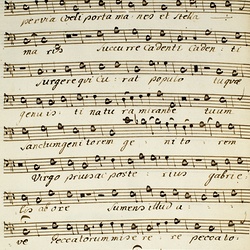 pervia Coeli porta manes et Stella
maris Succurre Cadenti Cadenti
Surgere qui Curat populo tu quae
genuisti natura mirante tuum
Sanctum genitorem genitorem
Virgo prius ac posterius gabrie
lis ab ore Sumens illud a
ve peccatorum miserere peccato